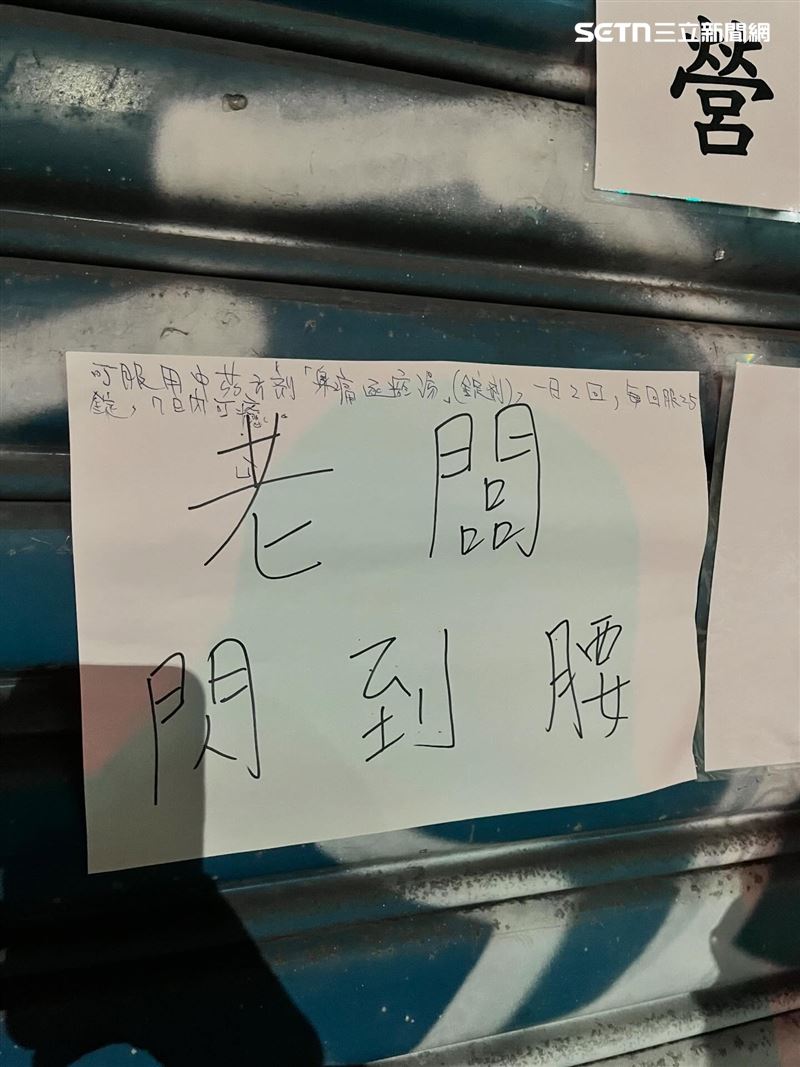 SETN三立新聞網
營
可服用中葯方劑「身痛逐瘀湯」(錠劑)，一日2回，每回服25
錠，7日內可癒。
老闆
閃到腰